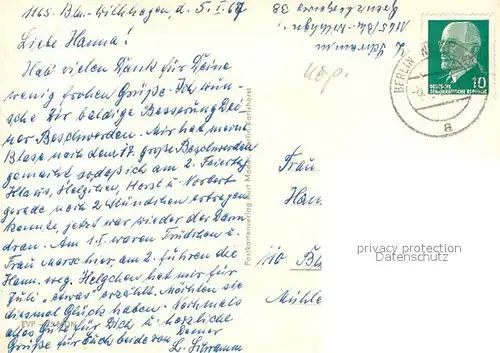 1165 Bln.-Wilhhagen, d. 5.I.67
Liebe Hanna!
Hab vielen Dank für Deine
wenig frohen Grüße. Ich wün-
sche Dir baldige Besserung Dei-
ner Beschwerden. Mir hat meine
Blase nach dem 17. große Beschwerden
gemacht sodaß ich am 2. Feiertag
Klaus, Helgchen, Horst u. Norbert
gerade noch 2 Stündchen ertragen
konnte, jetzt war wieder der Darm
dran. Am 1.I. waren Trudchen u.
Frau hier am 2. fuhren die
Hann. weg. Helgchen hat mir für
Juli "etwas" erzählt. Möchten sie
diesmal Glück haben. Nochmals
alles Gute für Dich u. herzliche
Grüße für Euch beide von Deiner
L.
1165 Bln-Wilhhgn.
38
BERLIN
10
DEUTSCHE
DEMOKRATISCHE REPUBLIK
a
Postkartenverlag Kurt Berlin-Karlshorst
Frau
110
Mühle
EVP
privacy protection
Datenschutz